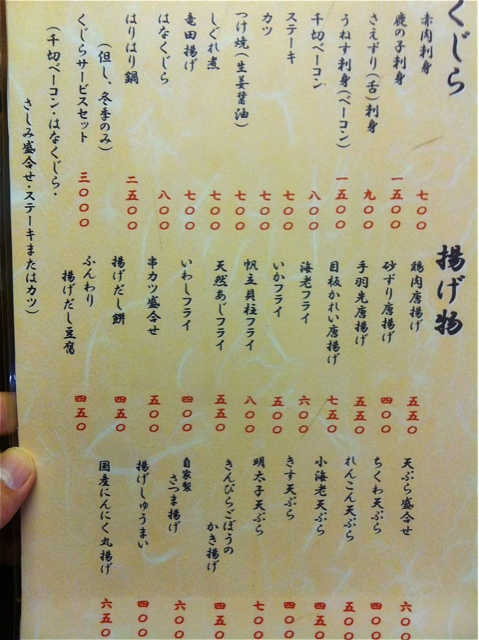 くじら
赤肉刺身 七〇〇
鹿の子刺身 一五〇〇
さえずり(舌)刺身 九〇〇
うねす刺身(ベーコン) 一五〇〇
千切ベーコン 八〇〇
ステーキ 七〇〇
カツ 七〇〇
つけ焼(生姜醤油) 七〇〇
しぐれ煮 七〇〇
竜田揚げ 七〇〇
はなくじら 八〇〇
はりはり鍋 二五〇〇
(但し、冬季のみ)
くじらサービスセット 三〇〇〇
(千切ベーコン・はなくじら・
さしみ盛合せ・ステーキまたはカツ)
揚げ物
鶏肉唐揚げ 五五〇
砂ずり唐揚げ 四〇〇
手羽先唐揚げ 五五〇
目板かれい唐揚げ 七五〇
海老フライ 六〇〇
いかフライ 五〇〇
帆立貝柱フライ 八〇〇
天然あじフライ 五五〇
いわしフライ 四〇〇
串カツ盛合せ 五〇〇
揚げだし餅 四五〇
ふんわり
揚げだし豆腐 四五〇
天ぷら盛合せ 六〇
ちくわ天ぷら 四〇〇
れんこん天ぷら 五〇〇
小海老天ぷら 四五〇
きす天ぷら 四〇〇
明太子天ぷら 七〇〇
きんぴらごぼうの
かき揚げ 四五〇
自家製
さつま揚げ 六〇〇
揚げしゅうまい 四〇〇
国産にんにく丸揚げ 六五〇